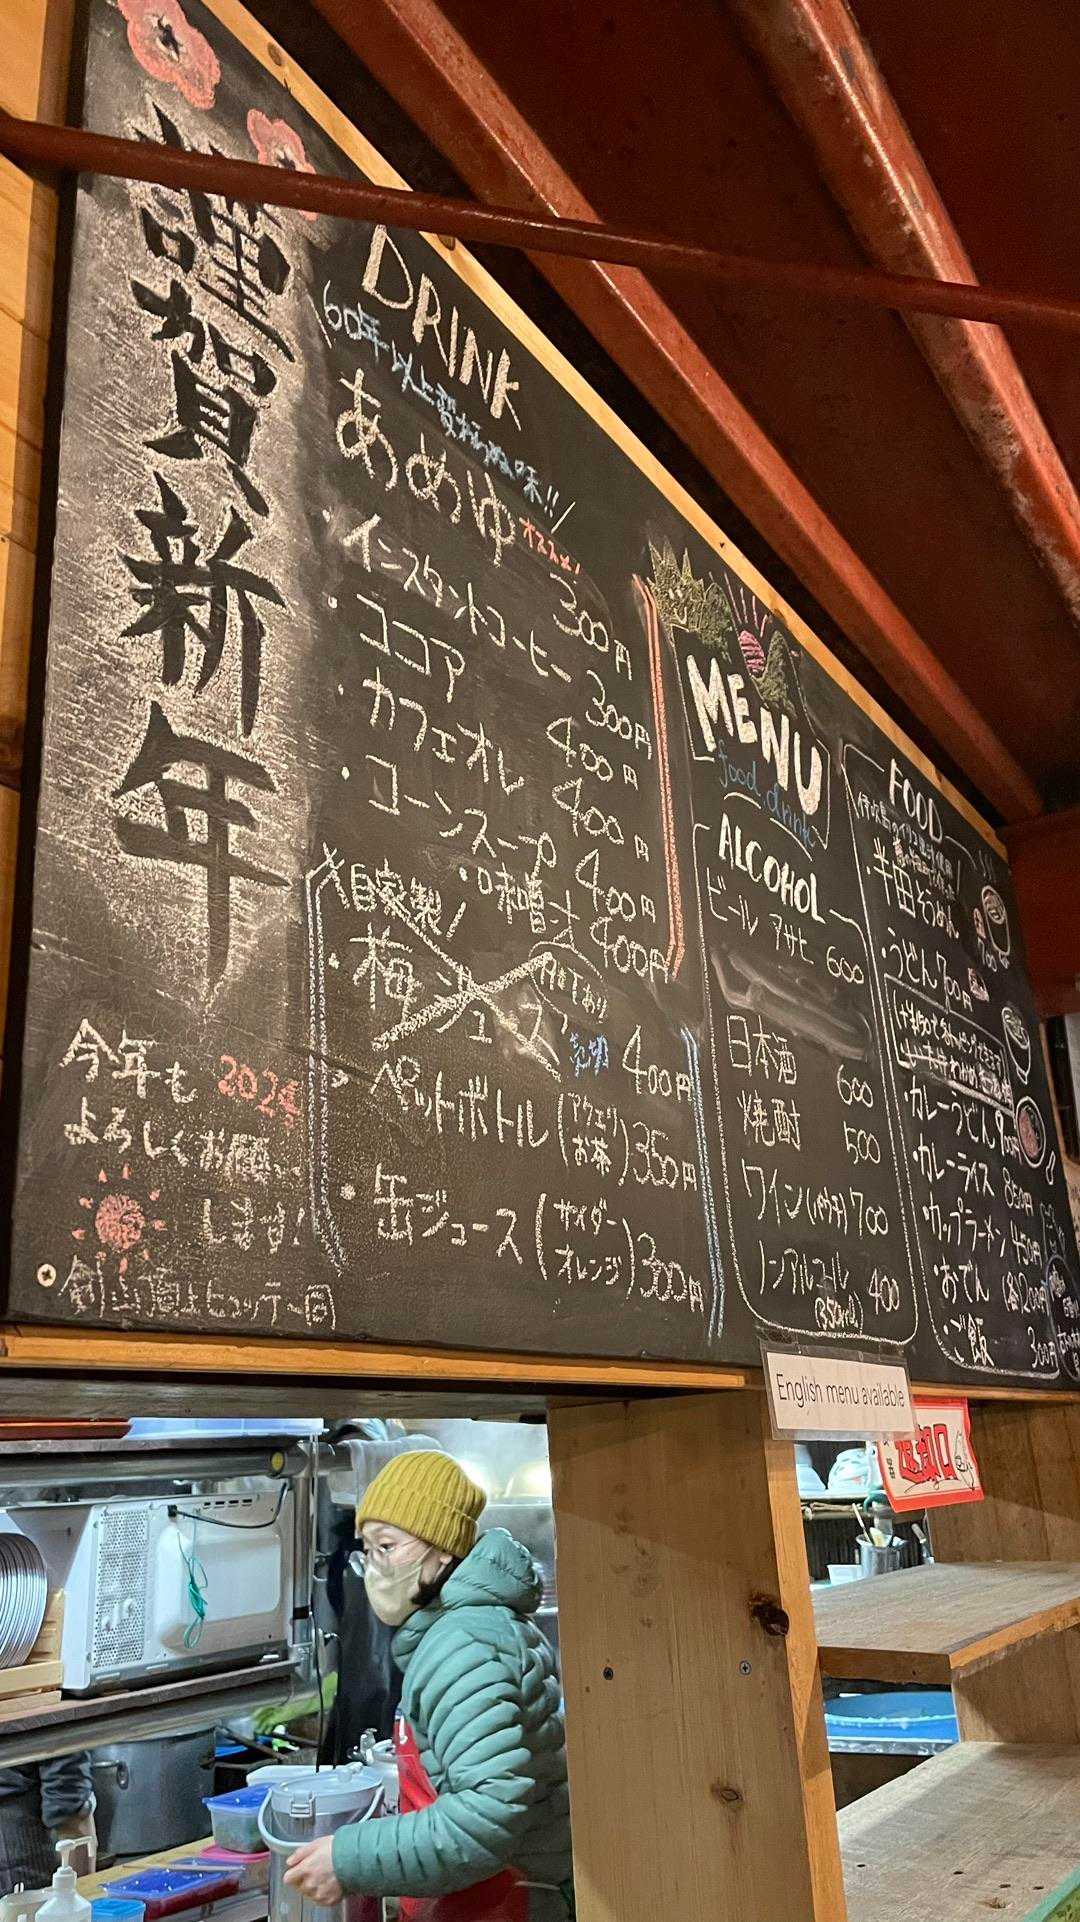 謹賀新年
今年も 2024
よろしくお願い
します!
剣山頂上ヒュッテ一同
DRINK
60年以上変わらぬ味!!
あめゆ オススメ! 300円
・インスタントコーヒー 300円
・ココア 400円
・カフェオレ 400円
・コーンスープ 400円
・味噌汁 400円
自家製!
・梅ジュース 400円
・ペットボトル(アクエリ お茶)350円
・缶ジュース(サイダー オレンジ)300円
MENU
food drink
ALCOHOL
ビール アサヒ 600
日本酒 600
焼酎 500
ワイン 700
ノンアルコール 400
(350ml)
FOOD
・半田そうめん 700
・うどん 700円
・カレーうどん 900円
・カレーライス 850円
・カップラーメン 450円
・おでん (各)200円
・ご飯 300円
English menu available